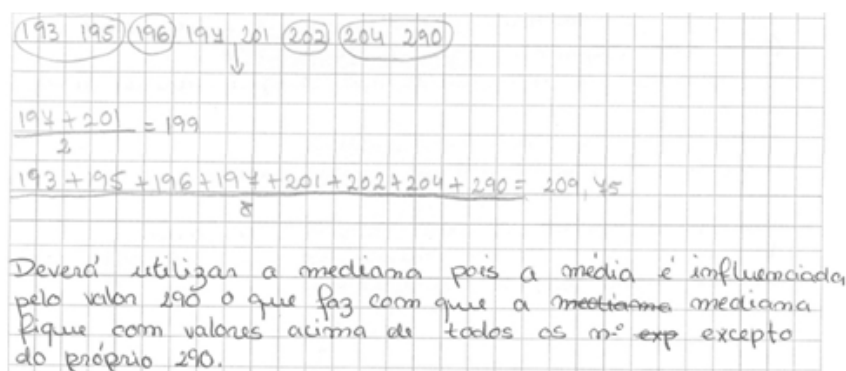 193 195 196 197 201 202 204 290
197 + 201 = 199
2
193 + 195 + 196 + 197 + 201 + 202 + 204 + 290 = 209,75
8
Deverá utilizar a mediana pois a média é influenciada
pelo valor 290 o que faz com que a mediana mediana
fique com valores acima de todos os n.º exp excepto
do próprio 290.